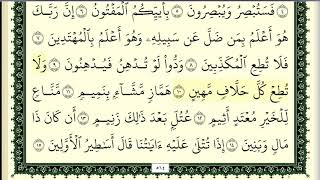 فَسَتُبْصِرُ وَيُبْصِرُونَ ۝ بِأَييِّكُمُ ٱلْمَفْتُونُ ۝ إِنَّ رَبَّكَ
هُوَ أَعْلَمُ بِمَن ضَلَّ عَن سَبِيلِهِۦ وَهُوَ أَعْلَمُ بِٱلْمُهْتَدِينَ ۝
فَلَا تُطِعِ ٱلْمُكَذِّبِينَ ۝ وَدُّوا۟ لَوْ تُدْهِنُ فَيُدْهِنُونَ ۝ وَلَا
تُطِعْ كُلَّ حَلَّافٍ مَّهِينٍ ۝ هَمَّازٍ مَّشَّآءٍۭ بِنَمِيمٍ ۝ مَّنَّاعٍ
لِّلْخَيْرِ مُعْتَدٍ أَثِيمٍ ۝ عُتُلٍّۭ بَعْدَ ذَٰلِكَ زَنِيمٍ ۝ أَن كَانَ ذَا
مَالٍ وَبَنِينَ ۝ إِذَا تُتْلَىٰ عَلَيْهِ ءَايَٰتُنَا قَالَ أَسَٰطِيرُ ٱلْأَوَّلِينَ ۝